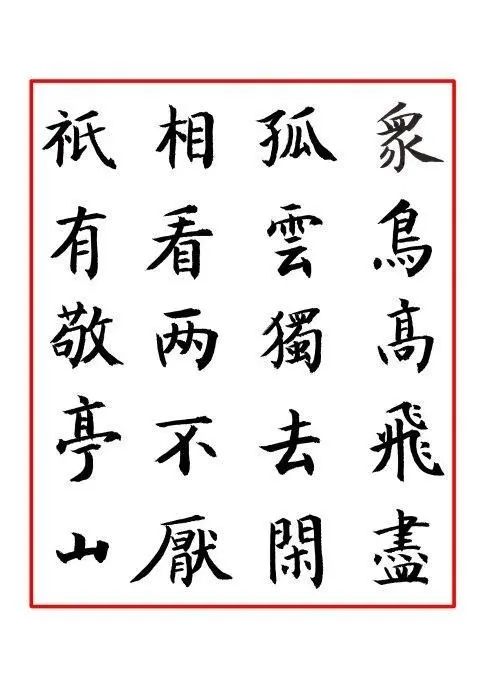 衆鳥高飛盡
孤雲獨去閑
相看两不厭
祇有敬亭山